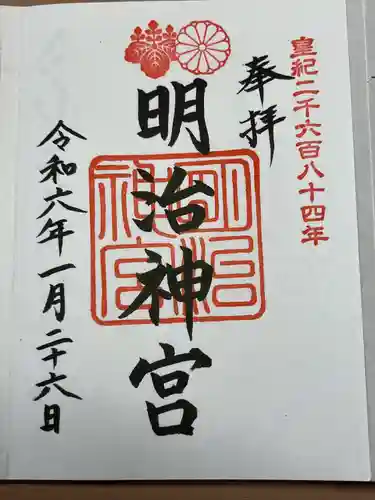 皇紀二千六百八十四年
奉拝
明治神宮
明治神宮
令和六年一月二十六日